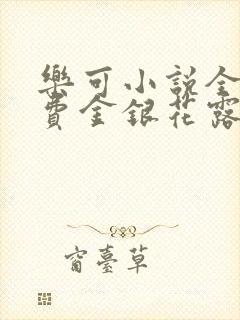 樂可小說全
費金銀花露
窗臺草